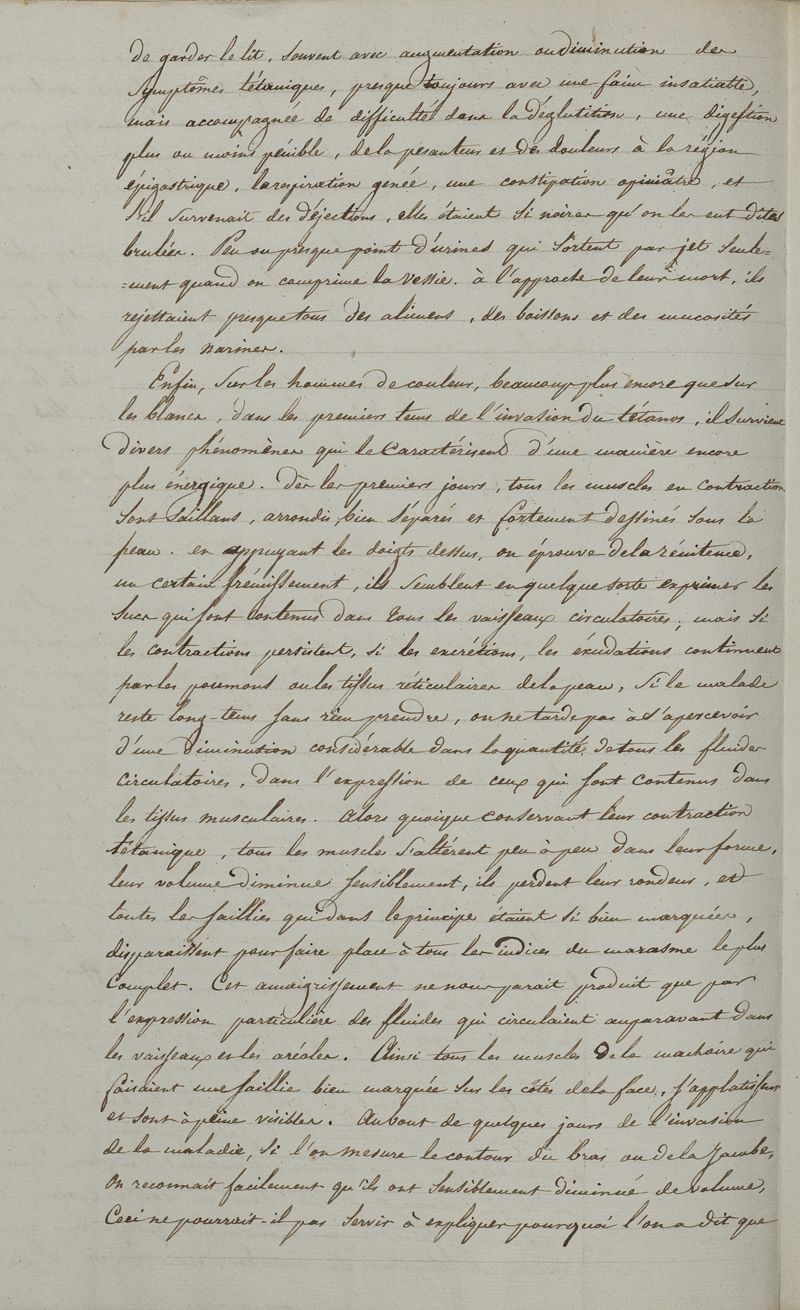 de garder le lit, souvent avec augmentation ou diminution des
symptômes tétaniques, presque toujours avec une faim insatiable,
mais accompagnée de difficulté dans la déglutition, une digestion
plus ou moins pénible, de la pesanteur et des douleurs à la région
épigastrique, la respiration genée, une constipation opiniâtre, et
s'il survenait des déjections, elles étaient si noires qu'on les eut dites
brulées. Peu ou presque point d'urines qui sortent par jet seule=
=ment quand on comprime la vessie. à l'approche de leur mort, ils
rejettaient presque tous des alimens, des boissons et des mucosités
par les narines.
Enfin, sur les hommes de couleur, beaucoup plus encore que sur
les blancs, dans les premiers tems de l'invasion du tétanos, il survient
divers phénomènes qui le caractérisent d'une manière encore
plus énergique. Dès les premiers jours, tous les muscles en contraction
sont saillans, arrondis, bien séparés et fortement dessinés sous la
peau. en appuyant les doigts dessus, on éprouve de la rénitence,
un certain frémissement, ils semblent en quelque sorte exprimer les
sucs qui sont contenus dans tous les vaisseaux circulatoires; mais si
les contractions persistent, si les excrétions, les éxudations continuent
par les poumons ou les tissus réticulaires de la peau, si le malade
reste long-tems sans rien prendre, on ne tarde pas à s'apercevoir
d'une diminution considérable dans la quantité de tous les fluides
circulatoires, dans l'expression de ceux qui sont contenus dans
les tissus musculaires. Alors quoique conservant leur contraction
tétanique, tous les muscles s'altèrent peu à peu dans leur forme,
leur volume diminue sensiblement, ils perdent leur rondeur, et
toutes les saillies qui dans le principe étaient si bien marquées,
disparaissent pour faire place à tous les indices du marasme le plus
complet. Cet amaigrissement ne nous parait produit que par
l'expression particulière des fluides qui circulaient auparavant dans
les vaisseaux et les aréoles. Ainsi tous les muscles de la machoire qui
faisaient une saillie bien marquée sur les côtés de la face, s'applatissent
et sont à peine visibles. Au bout de quelques jours de l'invasion
de la maladie, si l'on mesure le contour du bras ou de la jambe,
on reconnait facilement qu'ils ont sensiblement diminué de volume,
Ceci ne pourrait-il pas servir à expliquer pourquoi l'on a dit que